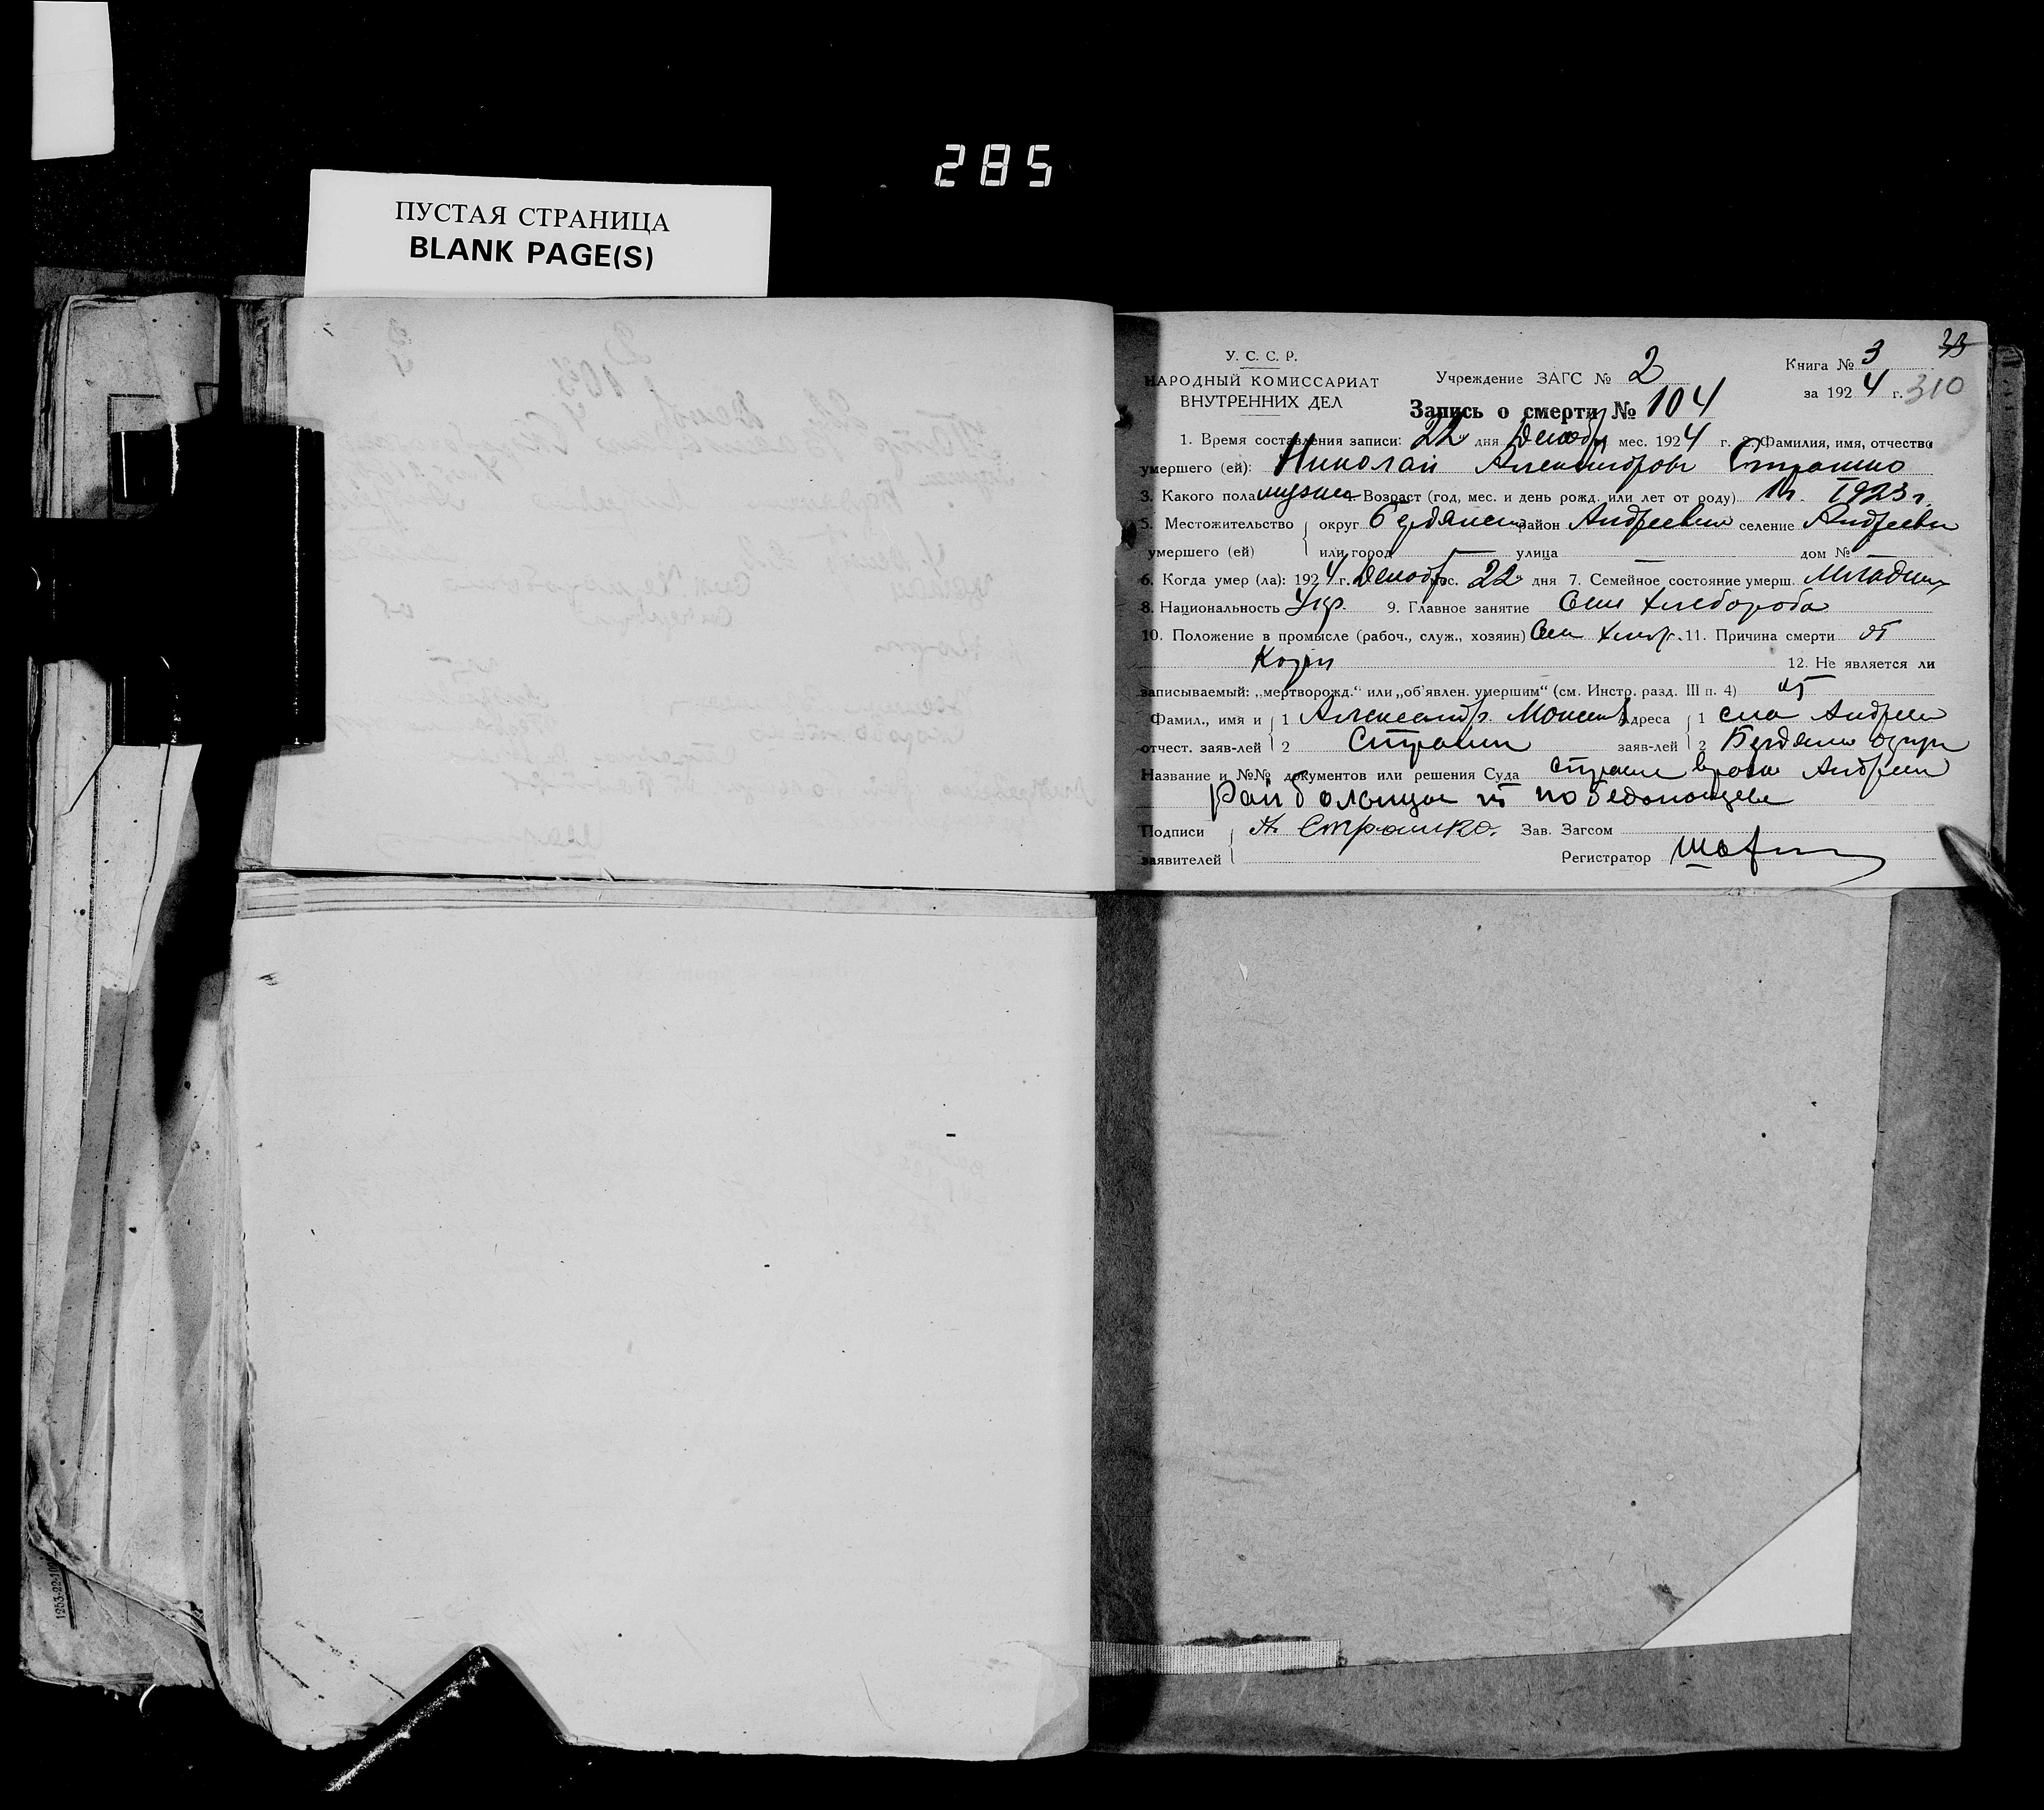 285
ПУСТАЯ СТРАНИЦА
BLANK PAGE(S)
33
У. С. С. Р.
НАРОДНЫЙ КОМИССАРИАТ
ВНУТРЕННИХ ДЕЛ
Учреждение ЗАГС № 2
Книга № 3
за 1924 г. 310
Запись о смерти № 104
1. Время составления записи: 22 дня Декабр мес. 1924 г. 2. Фамилия, имя, отчество
умершего (ей): Николай Александров Страшко
3. Какого пола мужск 4. Возраст (год, мес. и день рожд. или лет от роду) 1 г. 1923 г.
5. Местожительство округ Бердянск район Андреевск селение Андреевк
умершего (ей) или город — улица — дом № —
6. Когда умер (ла): 1924 г. Декабр мес. 22 дня 7. Семейное состояние умерш.
8. Национальность Укр. 9. Главное занятие Сын хлебороба
10. Положение в промысле (рабоч., служ., хозяин) Сын хлебор. 11. Причина смерти от
Кори 12. Не является ли
записываемый: „мертворожд.“ или „об'явлен. умершим“ (см. Инстр. разд. III п. 4)
Фамил., имя и 1 Александр Моисеев Адреса 1 село Андреев
отчест. заяв-лей 2 Страшк заяв-лей 2 Бердянск округ
Название и №№ документов или решения Суда справк врача Андреев
Рай больницы
Подписи А Страшко. Зав. Загсом
заявителей Регистратор
1253-22-102